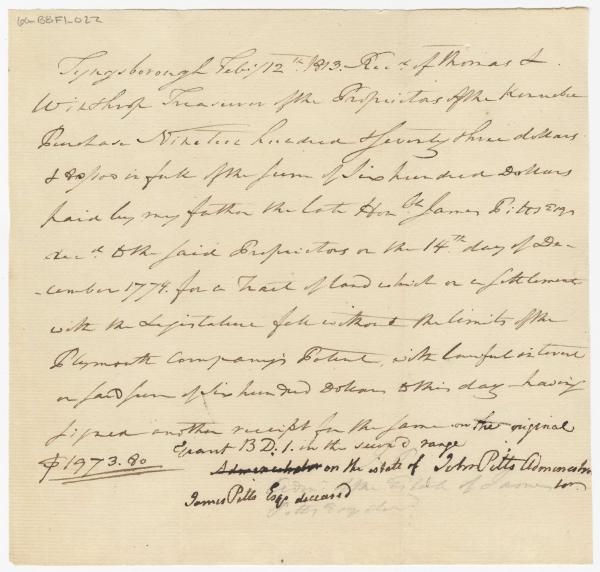 6a-BBF1-022
Tyngsborough Feby 12th 1813. Recd. of Thomas L.
Winthrop Treasurer of the Proprietors of the Kennebec
Purchase Nineteen hundred & seventy three dollars
& 80/100 in full of the sum of Six hundred Dollars
paid by my father the late Honble James Pitts Esqr
decd. to the said Proprietors on the 14th day of De-
-cember 1774. for a Tract of land which on a settlement
with the Legislature fell without the limits of the
Plymouth Company's Patent, with lawful interest
on said sum of six hundred Dollars to this day having
signed another receipt for the same on the original
Grant B D: 1. in the second range
$1973.80
on the estate of John Pitts
James Pitts Esqr deceased
of the Estate of James
Pitts